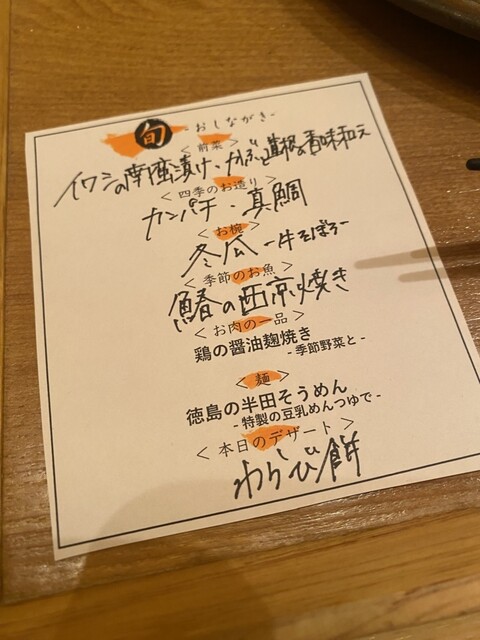 旬 -おしながき-
< 前菜 >
イワシの南蛮漬け・カボ 道根の香味和え
< 四季のお造り >
カンパチ・真鯛
< お椀 >
冬瓜 -牛そぼろ-
< 季節のお魚 >
鰆の西京焼き
< お肉の一品 >
鶏の醤油麹焼き
- 季節野菜と -
< 麺 >
徳島の半田そうめん
- 特製の豆乳めんつゆで -
< 本日のデザート >
わらび餅